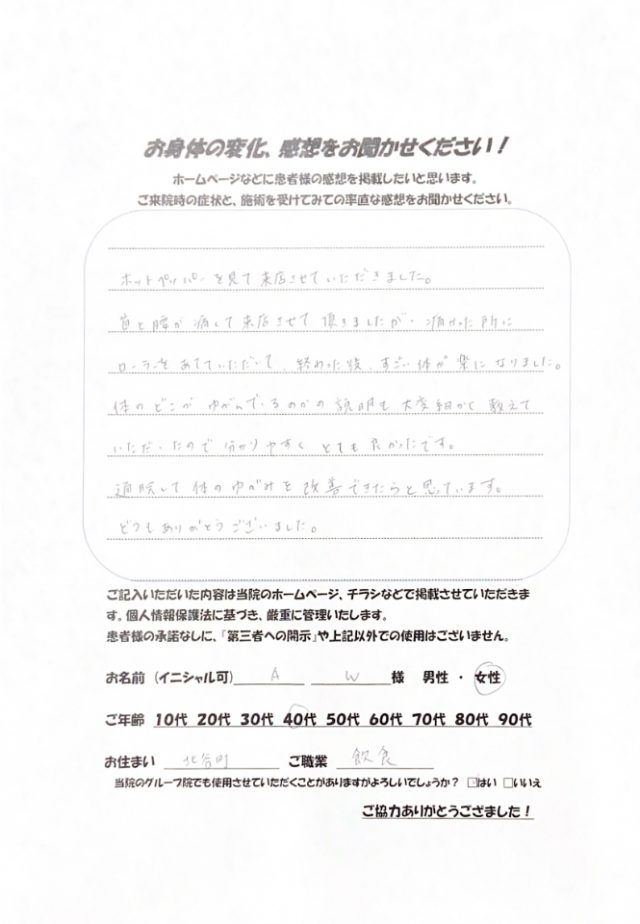 お身体の変化、感想をお聞かせください！
ホームページなどに患者様の感想を掲載したいと思います。
ご来院時の症状と、施術を受けてみての率直な感想をお聞かせください。
ホットペッパーを見て来店させていただきました。
首と腰が痛くて来店させて頂きましたが、痛かった所に
ローラーをあてていただいて、終わった後、すごい体が楽になりました。
体のどこがゆがんでいるのかの説明も大変細かく教えて
いただいたので分かりやすくとても良かったです。
通院して体のゆがみを改善できたらと思っています。
どうもありがとうございました。
ご記入いただいた内容は当院のホームページ、チラシなどで掲載させていただきま
す。個人情報保護法に基づき、厳重に管理いたします。
患者様の承諾なしに、『第三者への開示』や上記以外での使用はございません。
お名前（イニシャル可） A W 様 男性 ・ 女性
ご年齢 10代 20代 30代 40代 50代 60代 70代 80代 90代
お住まい ご職業 飲食
当院のグループ院でも使用させていただくことがありますがよろしいでしょうか？ □はい □いいえ
ご協力ありがとうござました！